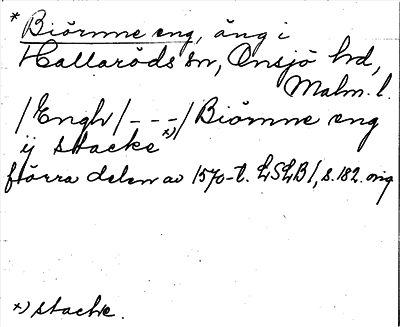 * Biörnne eng, äng i
Hallaröds sn, Onsjö hd,
Malm. l.
/Engh/ - - -/ Biörnne eng
ij stacke *)
förra delen av 1570-t. LSLB 1, s. 182. orig
*) stacke.